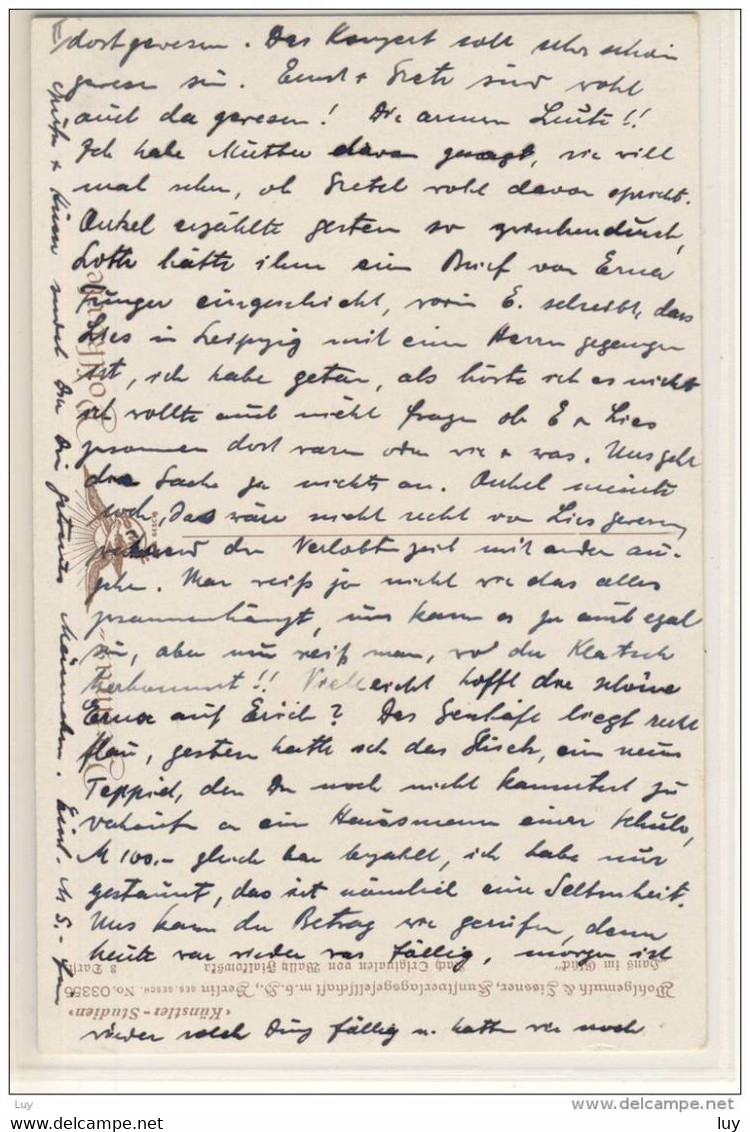 II
dort gewesen. Das Konzert soll sehr schön
gewesen sein. Ernst + Grete sind wohl
auch da gewesen! Die armen Leute!!
Ich habe Mutter davon gesagt, sie will
mal sehen, ob Gretel wohl davon spricht.
Onkel erzählte gestern so zwischendurch,
Lotte hätte ihm ein Brief von Erna
Junger eingeschickt, worin E. schreibt, dass
Lies in Leipzig mit einem Herrn gegangen
ist, ich habe getan, als hörte ich es nicht
ich wollte auch nicht fragen ob E + Lies
zusammen dort waren oder wie + was. Uns geht
die Sache ja nichts an. Onkel meinte
noch, das wäre nicht recht von Lies gewesen,
während der Verlobtenzeit mit ander aus-
gehn. Man weiß ja nicht wie das alles
zusammenhängt, uns kann es ja auch egal
sein, aber nun weiß man, wo der Klatsch
herkommt!! Vielleicht hofft die schöne
Erna auf Erich? Das Geschäft liegt recht
flau, gestern hatte ich das Glück, ein neuen
Teppich, den Du noch nicht kanntest zu
verkaufen an ein Hausmann einer Schule,
M 100.- gleich bar bezahlt, ich habe nur
gestaunt, das ist nämlich eine Seltenheit.
Uns kam der Betrag wie gerufen, denn
heute war wieder was fällig, morgen ist
wieder solch Ding fällig u. hatten wir noch
Grüße + Küsse sendet Dir Dein getreues Männchen. Einl. M 5.-
"Hans im Glück"
Nach Originalen von Wally Fialkowska
Wohlgemuth & Lissner, Kunstverlagsgesellschaft m.b.H., Berlin
«Künstler-Studien» GES. GESCH. No. 03355
Luy
delcampe.net
luy